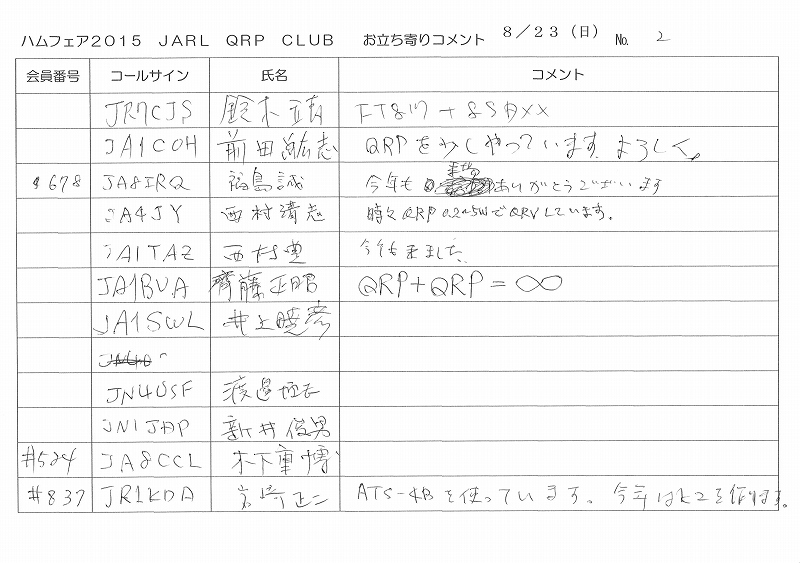 ハムフェア2015 JARL QRP CLUB お立ち寄りコメント 8/23(日) No. 2
会員番号 コールサイン 氏名 コメント
JR7CJS 鈴木
JA1COH 前田 志 QRPを少しやっています。よろしく。
#678 JA8IRQ 福島誠 今年も ありがとうございます
JA4JY 西村清志 時々QRP 0.2~5WでQRVしています。
JA1TAZ 西村 今年も来ました。
JA1BVA 齊藤正昭 QRP+QRP=∞
JA1SWL 井上暁彦
JN4USF 渡邉
JN1JAP 新井俊男
#524 JA8CCL 木下重博
#837 JR1KDA 岩崎正二 ATS-4Bを使っています。今年はK2を作ります。